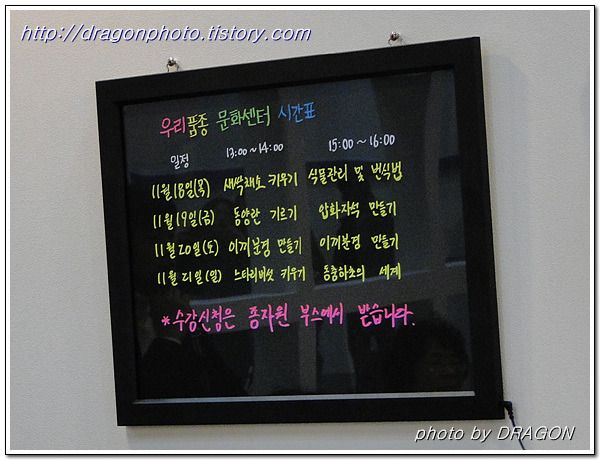 http://dragonphoto.tistory.com/
우리품종 문화센터 시간표
일정 13:00~14:00 15:00~16:00
11월18일(목) 새싹채소 키우기 식물관리 및 번식법
11월19일(금) 동양란 기르기 압화자석 만들기
11월20일(토) 이끼분경 만들기 이끼분경 만들기
11월21일(일) 느타리버섯 키우기 동충하초의 세계
*수강신청은 종자원 부스에서 받습니다.
photo by DRAGON